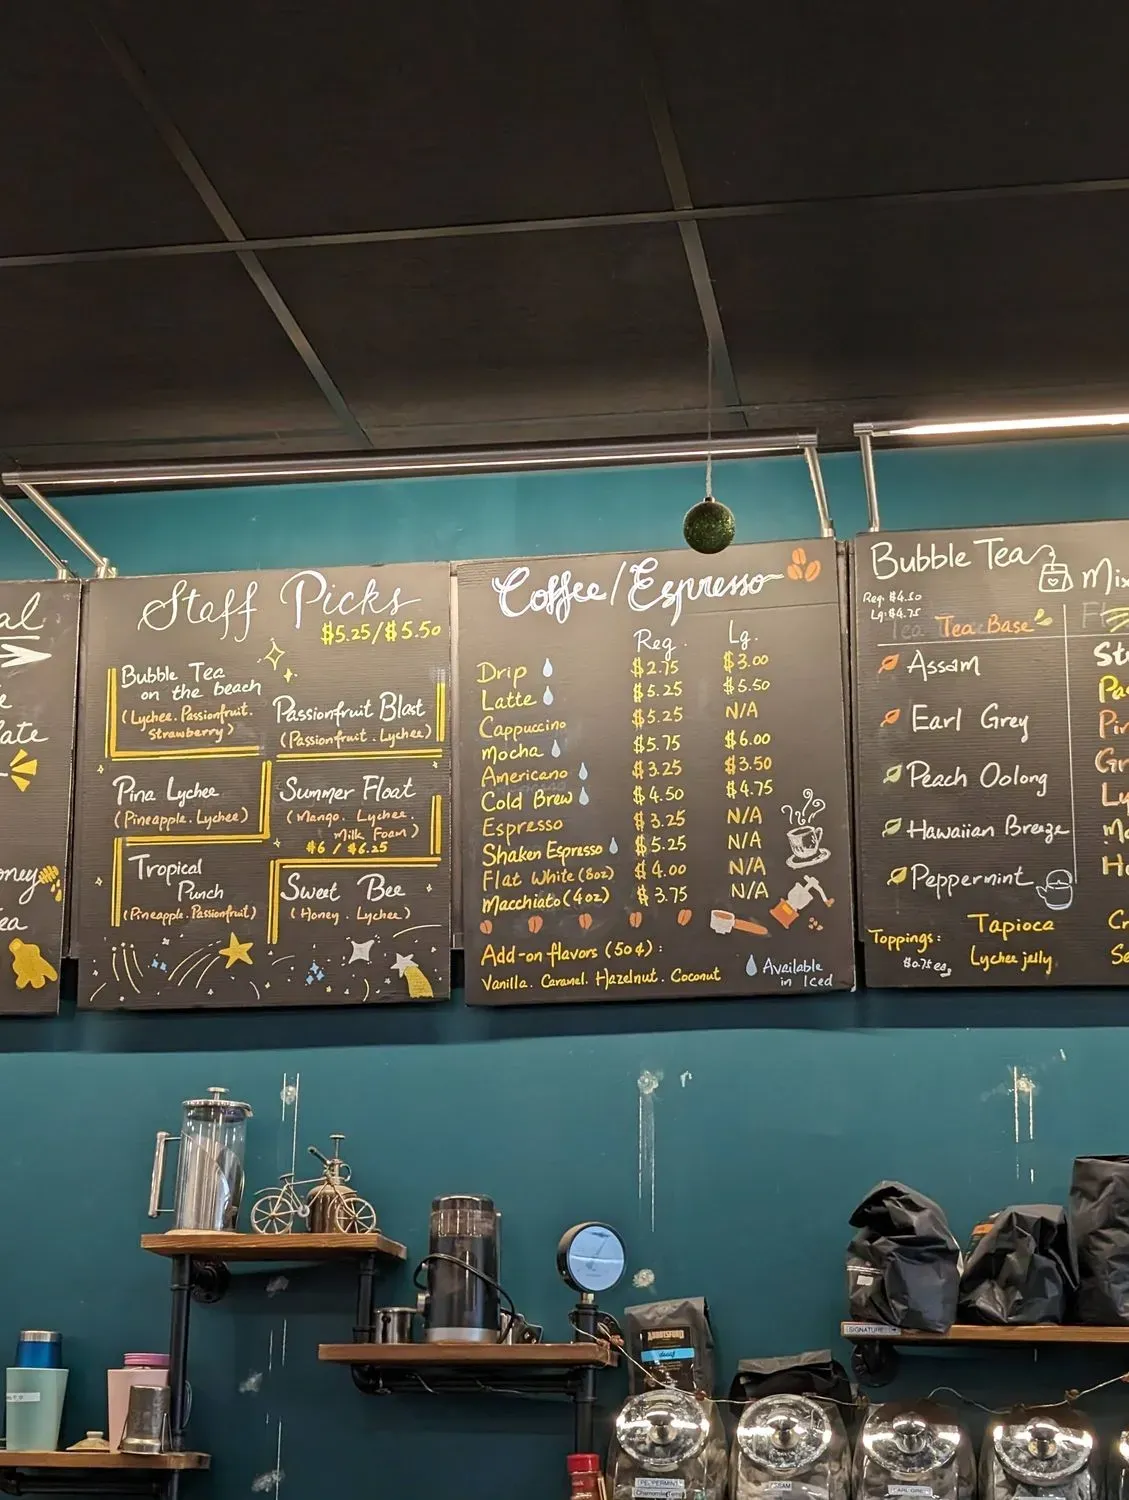 al
ate
oney
ea
Staff Picks
$5.25/$5.50
Bubble Tea
on the beach
(Lychee. Passionfruit.
Strawberry)
Passionfruit Blast
(Passionfruit. Lychee)
Pina Lychee
(Pineapple. Lychee)
Summer Float
(Mango. Lychee.
Milk Foam)
$6 / $6.25
Tropical
Punch
(Pineapple. Passionfruit)
Sweet Bee
(Honey. Lychee)
Coffee/Espresso
Reg. Lg.
Drip $2.75 $3.00
Latte $5.25 $5.50
Cappuccino $5.25 N/A
Mocha $5.75 $6.00
Americano $3.25 $3.50
Cold Brew $4.50 $4.75
Espresso $3.25 N/A
Shaken Espresso $5.25 N/A
Flat White (8oz) $4.00 N/A
Macchiato (4oz) $3.75 N/A
Add-on flavors (50¢):
Vanilla. Caramel. Hazelnut. Coconut
Available
in Iced
Bubble Tea
Reg: $4.50
Lg: $4.75
Tea Base
Assam
Earl Grey
Peach Oolong
Hawaiian Breeze
Peppermint
Toppings:
$0.75 ea.
Tapioca
Lychee jelly
Mix
St
Pa
Pin
Gr
Ly
Ma
Ho
Cr
Se
SIGNATURE
ABBOTSFORD
decaf
PEPPERMINT
ASSAM
EARL GREY